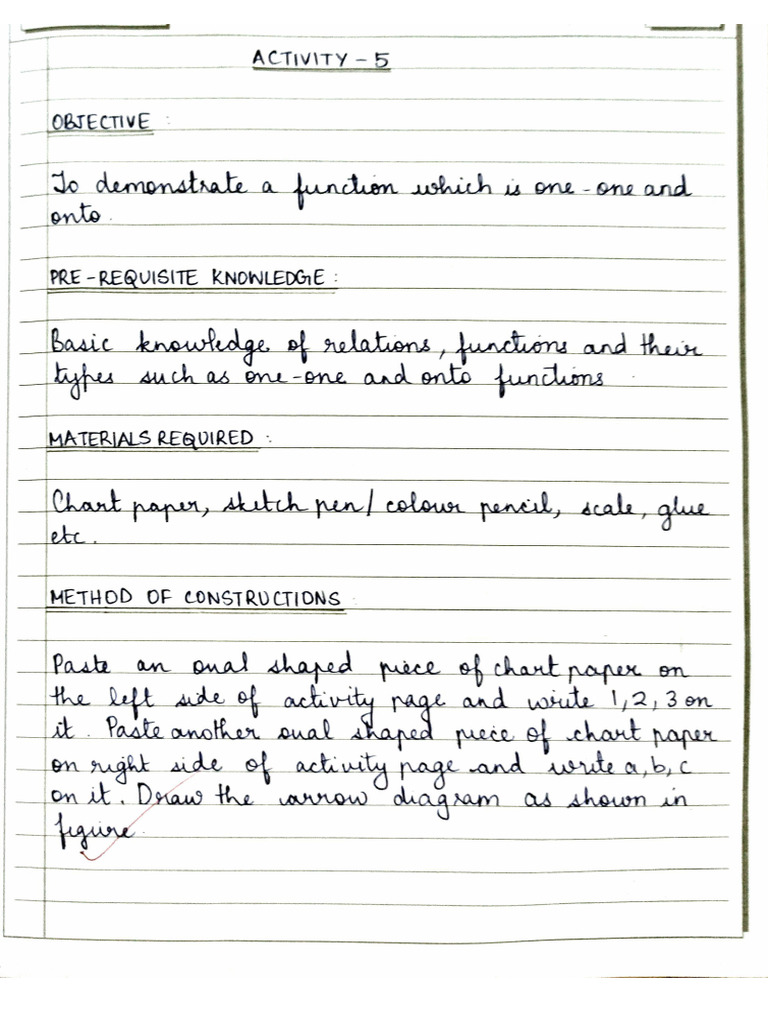 ACTIVITY - 5
OBJECTIVE :
To demonstrate a function which is one-one and
onto.
PRE-REQUISITE KNOWLEDGE :
Basic knowledge of relations, functions and their
types such as one-one and onto functions.
MATERIALS REQUIRED :
Chart paper, sketch pen/ colour pencil, scale, glue
etc.
METHOD OF CONSTRUCTIONS :
Paste an oval shaped piece of chart paper on
the left side of activity page and write 1, 2, 3 on
it. Paste another oval shaped piece of chart paper
on right side of activity page and write a, b, c
on it. Draw the arrow diagram as shown in
figure.